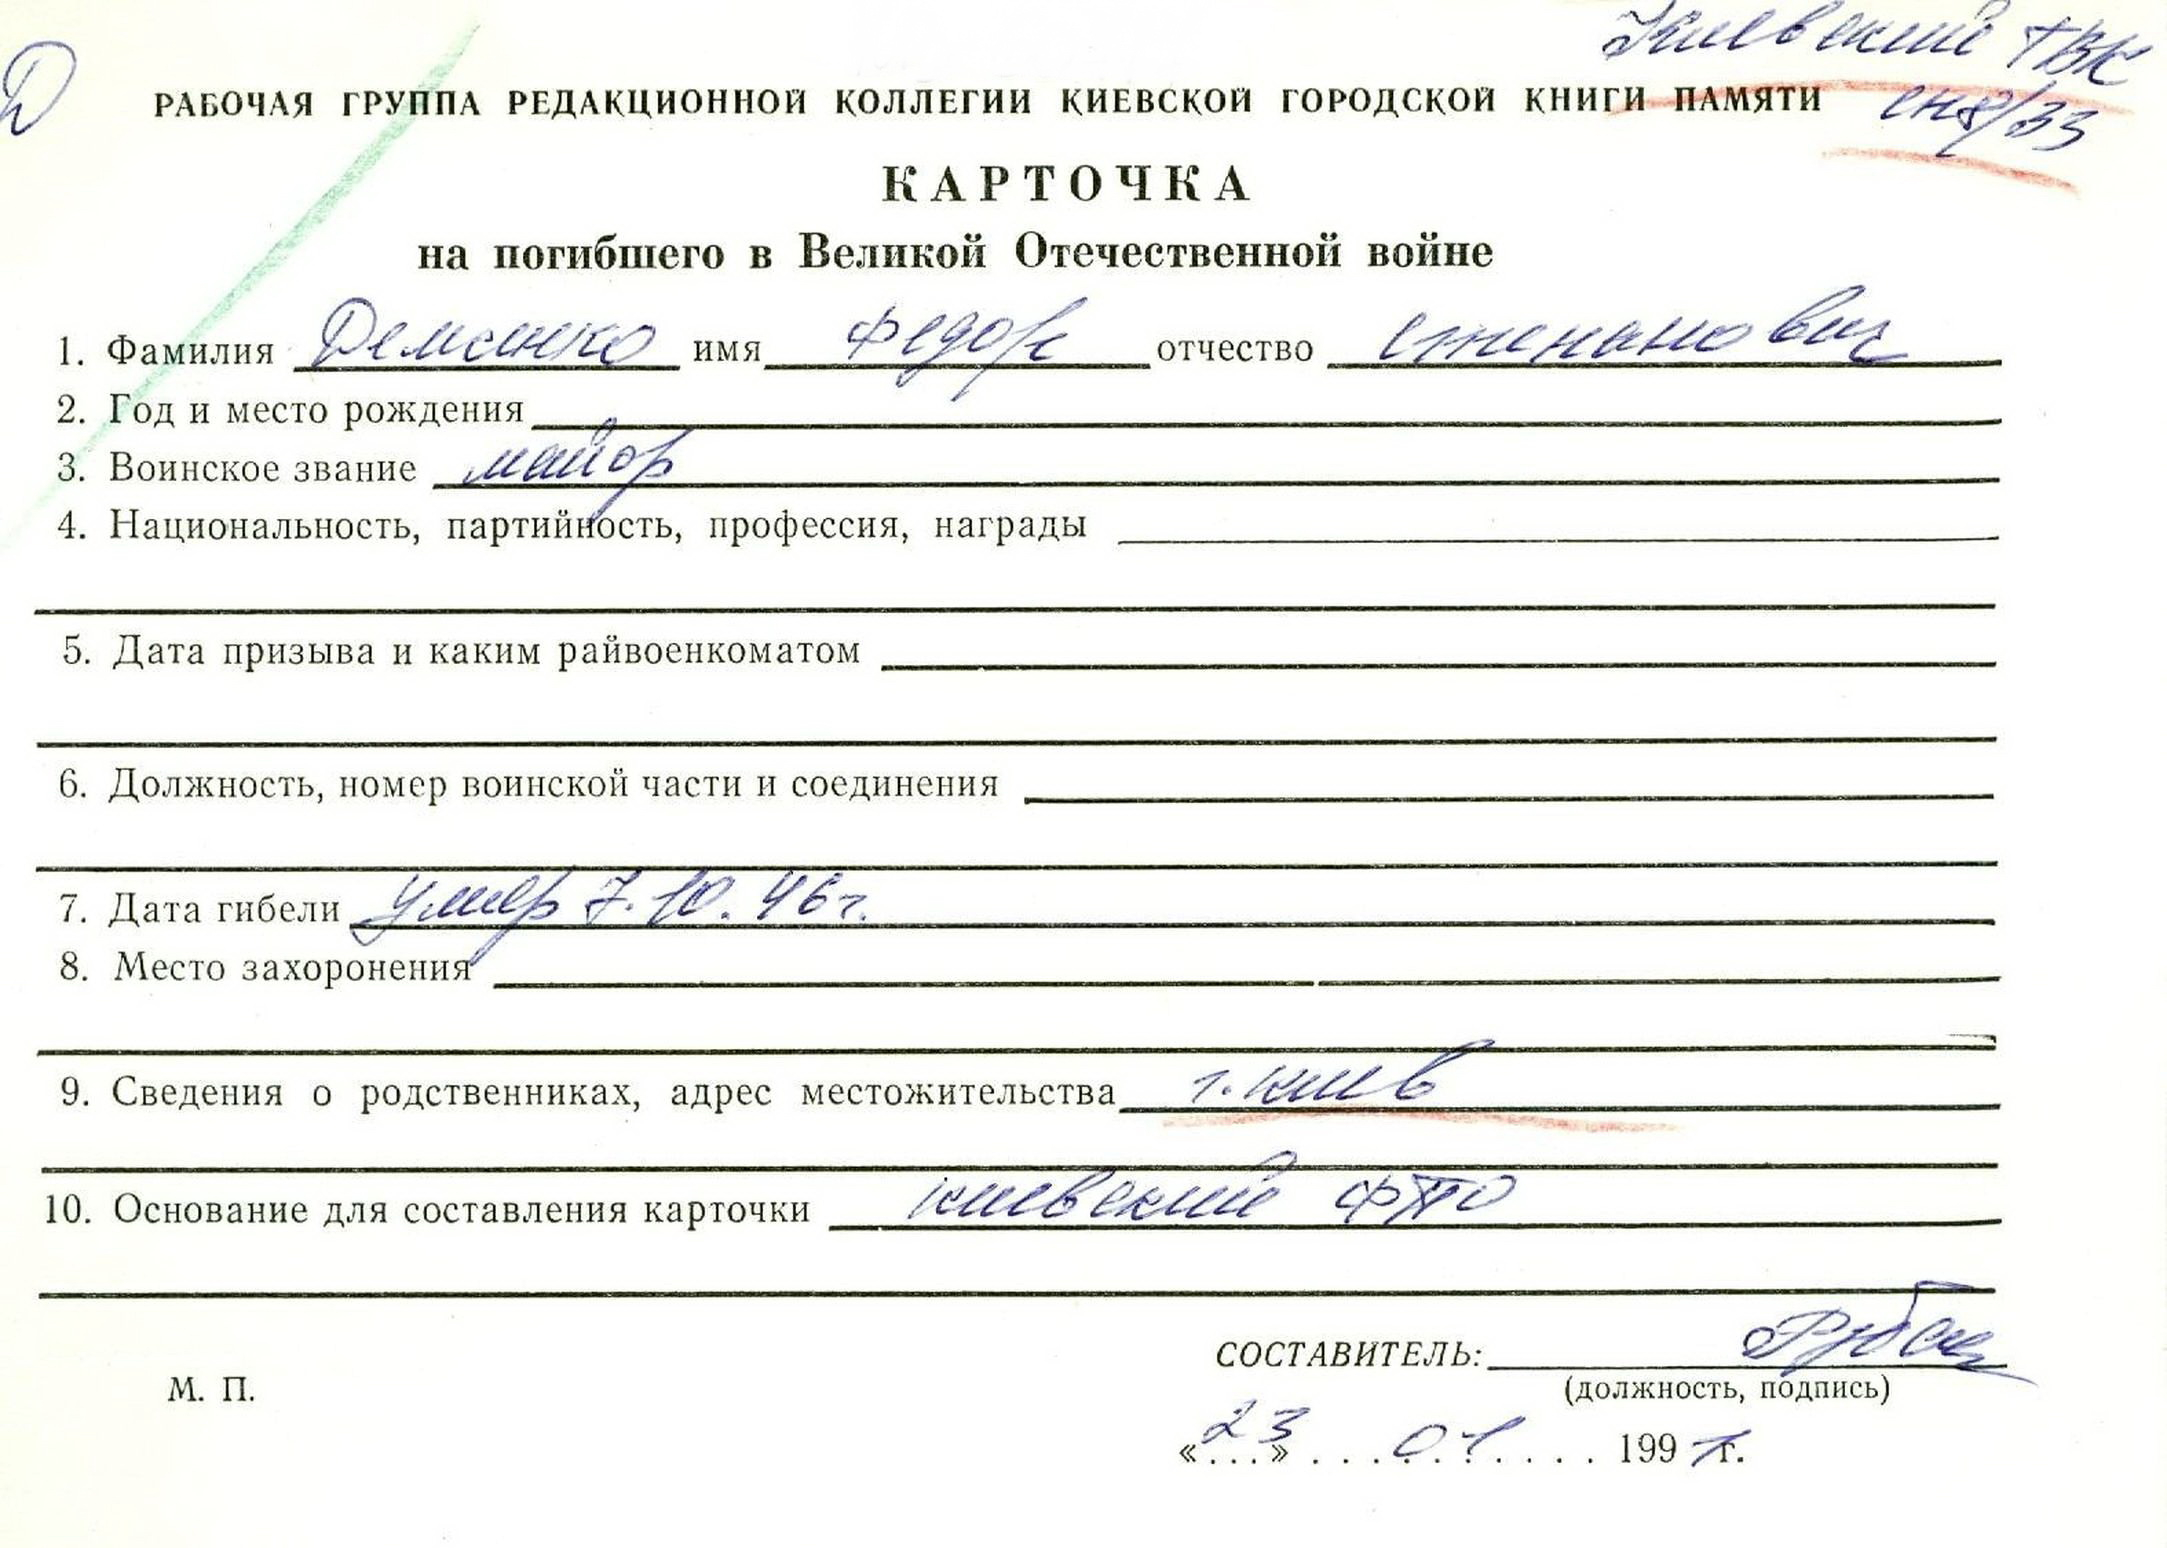 Киевский ГВК
Д
РАБОЧАЯ ГРУППА РЕДАКЦИОННОЙ КОЛЛЕГИИ КИЕВСКОЙ ГОРОДСКОЙ КНИГИ ПАМЯТИ
КАРТОЧКА
на погибшего в Великой Отечественной войне
1. Фамилия Демсенко имя Федор отчество Степанович
2. Год и место рождения
3. Воинское звание майор
4. Национальность, партийность, профессия, награды
5. Дата призыва и каким райвоенкоматом
6. Должность, номер воинской части и соединения
7. Дата гибели умер 7.10.46г.
8. Место захоронения
9. Сведения о родственниках, адрес местожительства г. Киев
10. Основание для составления карточки Киевский
СОСТАВИТЕЛЬ:
М. П.
(должность, подпись)
«23» 01 199 г.